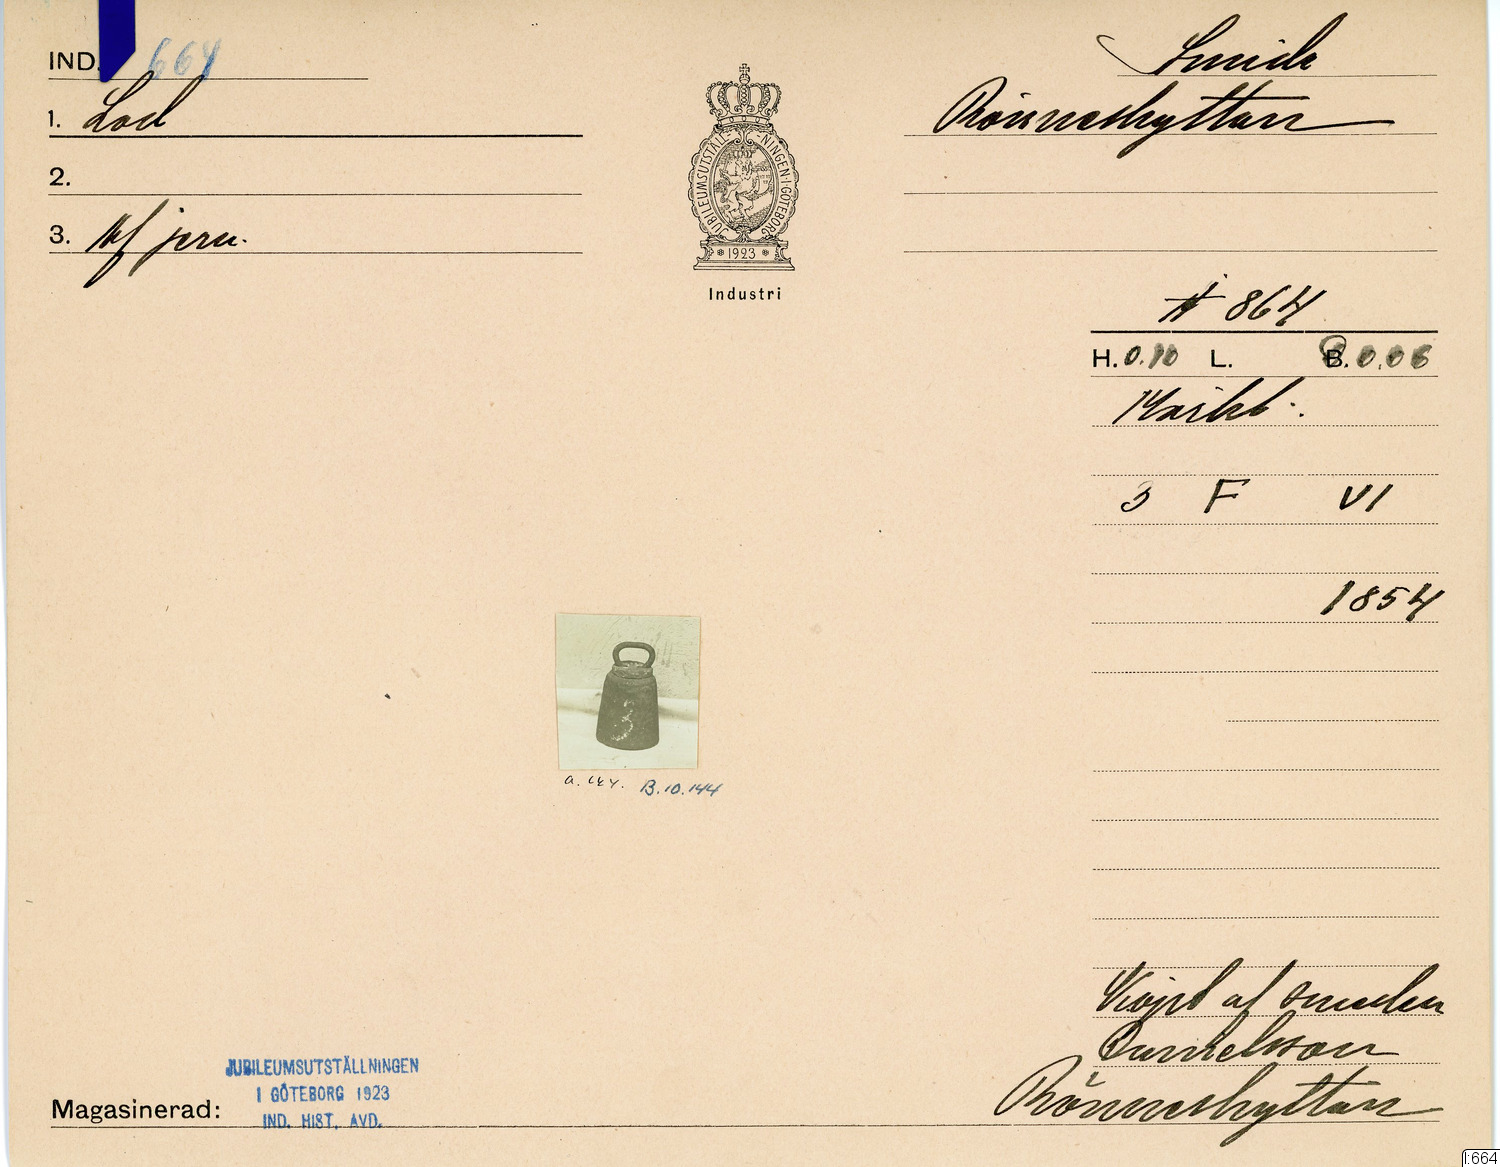 IND. 664
Smide
1. Lod
Rönneshyttan
2.
3. Af jern.
JUBILEUMSUTSTÄLLNINGEN·I·GÖTEBORG
1923
Industri
# 864
H. 0.10 L. B. 0.06
Märkt:
3 F VI
1854
3
a. 664. B.10.144
Köpt af smeden
Danielsson
Rönneshyttan
JUBILEUMSUTSTÄLLNINGEN
I GÖTEBORG 1923
IND. HIST. AVD.
Magasinerad:
I:664